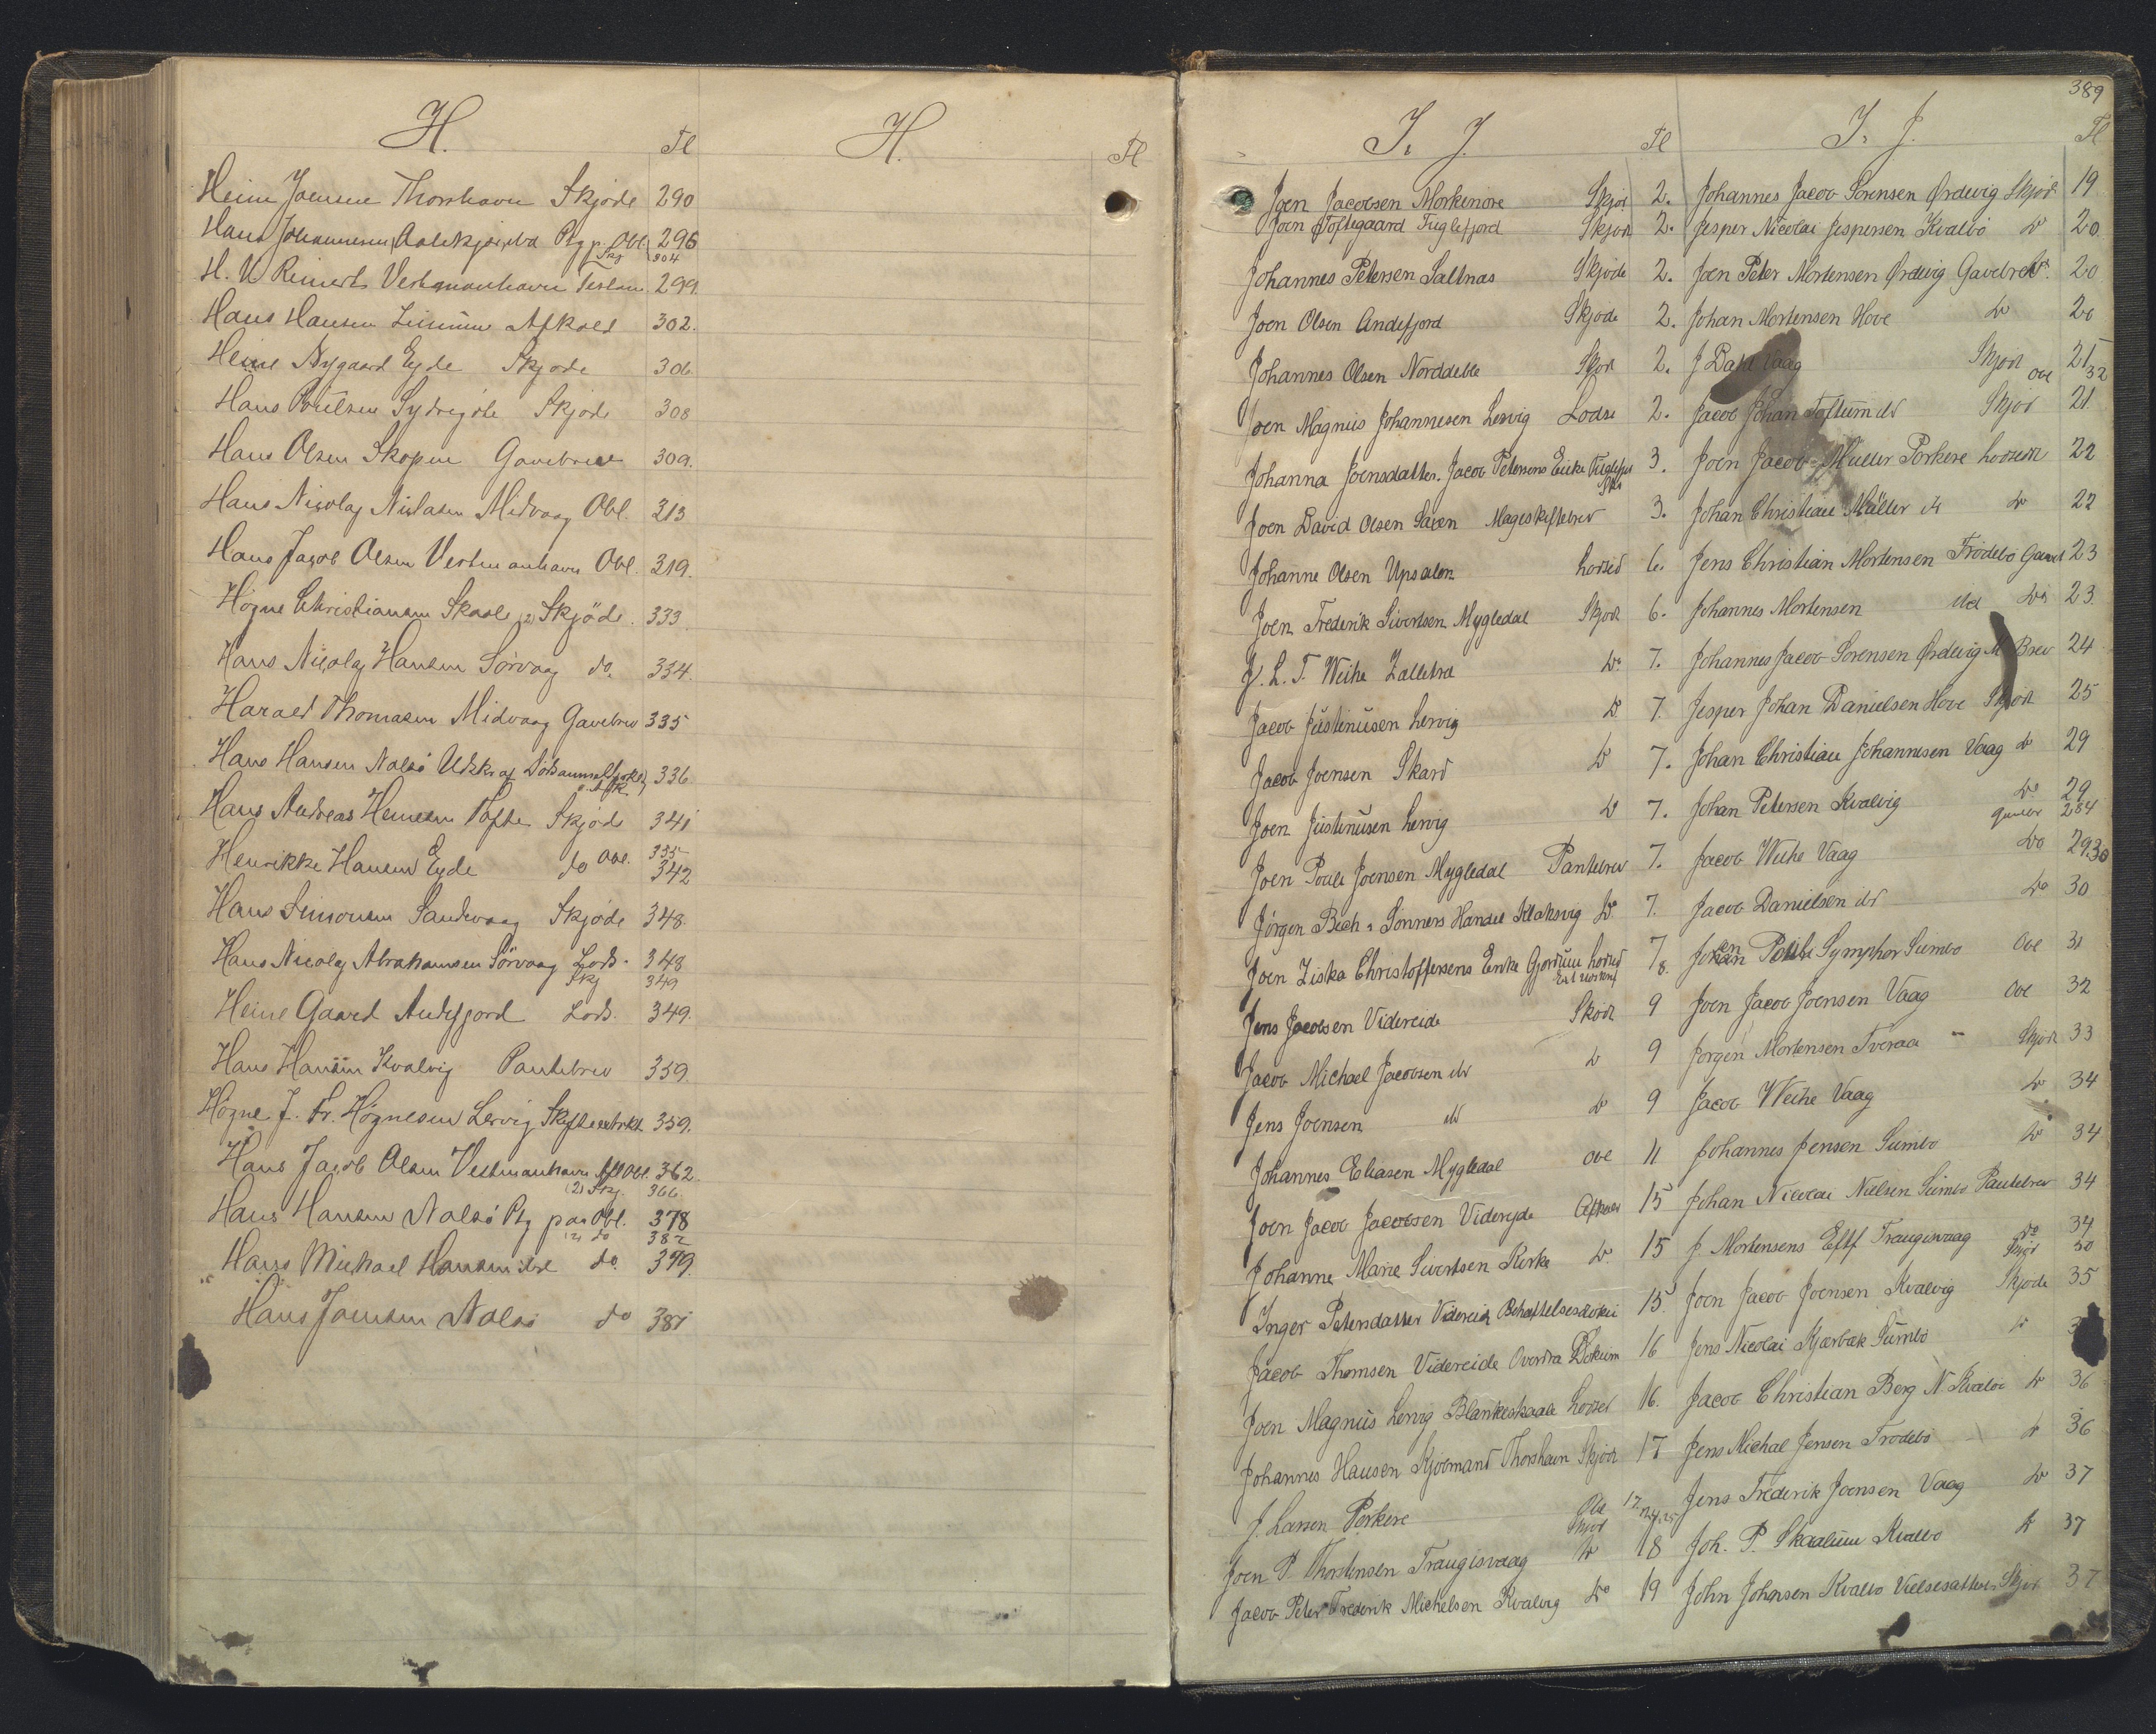 H.
Fl
Heine Joensen Thorshavn Skjøde 290
Hans Johannesen, Ptg p. Obl. 296
Skj 304
H. U. Reinert Vestmanhavn 299.
Hans Hansen Afkald 302.
Heine Nygaard Eyde Skjøde 306
Hans Poulsen Sydregöte Skjøde 308
Hans Olsen Skopen Gavebrev 309.
Hans Nicolaj Niclasen Midvaag Obl. 313
Hans Jacob Olsen Vestmanhavn Obl. 319.
Högne Christiansen Skaale (2) Skjöde. 333
Hans Nicolaj Hansen Sörvaag do. 334.
Harald Thomasen Midvaag Gavebrev 335
Hans Hansen Nolsö Udskr af 336
Hans Andreas Heinesen Tofte Skjøde 341
Henrikke Hansen Eyde do Obl. 335
342
Hans Simonsen Sandevaag Skjøde 348.
Hans Nicolaj Abrahamsen Sörvaag Lods. 348
Skj 349
Heine Gaard Andefjord Lods. 349.
Hans Hansen Kvalvig Pantebrev 359.
Högne J. Fr. Høgnesen Lervig Skifteextrakt 359.
Hans Jacob Olsen Vestmanhavn Obl. 362.
(2) Skj. 366
Hans Hansen Nolsö Ptg paa Obl. 378
(2) do 382
Hans Michael Hansen do. 379.
Hans Joensen Nolsö do 381
H.
Fl
389
I. J.
Fl
Joen Jacobsen Morkenöre Skjød 2.
Joen Toftegaard Fuglefjord Skjøde 2.
Johannes Petersen Saltnæs Skjøde 2.
Joen Olsen Andefjord Skjøde 2.
Johannes Olsen Norddeble Skjød 2.
Joen Magnus Johannesen Lervig Lodse 2.
Johanna Joensdatter. Jacob Petersens Enke 3.
Joen David Olsen Saxen Mageskiftebrev 3.
Johanne Olsen Upsalen Lodsed 6.
Joen Frederik Sivertsen Mygledal Skjøde 6.
J. L. T. Weihe Zalletrae Do 7.
Jacob Justinusen Lervig Do 7.
Jacob Joensen Skard Do 7.
Joen Justinusen Lervig Do 7.
Joen Poule Joensen Mygledal Pantebrev 7.
Jörgen Bech & Sönners Handel Klaksvig Do 7.
Joen Ziska Christoffersens Enke Gjordum Lodsed 7
8.
Jens Jacobsen Videreide Skjöde 9
Jacob Michael Jacobsen ibd Do 9
Jens Joensen ibd Do 9
Johannes Eliasen Mygledal Obl 11
Joen Jacob Jacobsen Videreyde Afkald 15
Johanne Marie Sivertsen Kirke Do 15
Inger Petersdatter Videreide 15.
Jacob Thomsen Videreide Overdra Dokum 16
Joen Magnus Lervig Blankeskaale Lodsed 16.
Johannes Hansen Kjøbmand Thorshavn Skjöde 17
J. Larsen Porkere Obl 17
Skjød
Joen P. Thorstensen Trangisvaag Do 18
Jacob Peter Frederik Michelsen Kvalvig Do 19
I. J.
Fl
Johannes Jacob Sörensen Ördevig Skjøde 19
Jesper Nicolai Jespersen Kvalbö Do 20
Joen Peter Mortensen Ördevig Gavebrev 20
Johan Mortensen Hove Do 20
J Dahl Vaag Skjöde 21
Obl 32
Jacob Johan Toftum ibd Skjød 21.
Joen Jacob Müller Porkere Lodsed 22
Johan Christian Müller ib Do 22
Jens Christian Mortensen Frödebö 23
Johannes Mortensen ibd Do 23
Johannes Jacob Sörensen Ördevig M Brev 24
Jesper Johan Danielsen Hove Skjöde 25
Johan Christian Johannesen Vaag do 29
Johan Petersen Kvalvig Do 29
284
Jacob Weihe Vaag Do 29.30
Jacob Danielsen ibd Do 30
Poule Symphor Sumbö Obl 31
Joen Jacob Joensen Vaag Obl 32
Jørgen Mortensen Tveraa Skjöde 33
Jacob Weihe Vaag Do 34
Johannes Jensen Sumbö Do 34
Johan Nicolai Nielsen Sumbö Pantebrev 34
J. Mortensens Eftf Trangisvaag Do 34
Skjød 50
Joen Jacob Joensen Kvalvig Skjøde 35
Jens Nicolai Kjærbæk Sumbö Do
Jacob Christian Berg N. Kvalbö Do 36
Jens Michal Jensen Frodebö Do 36
Jens Frederik Joensen Vaag Do 37
Joh. P. Skaalum Kvalbö Do 37
John Johansen Kvalbö Skjöd 37